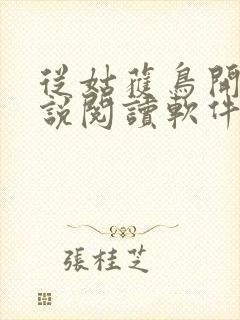 從姑蒦鳥開
說閱讀軟件
張桂芝